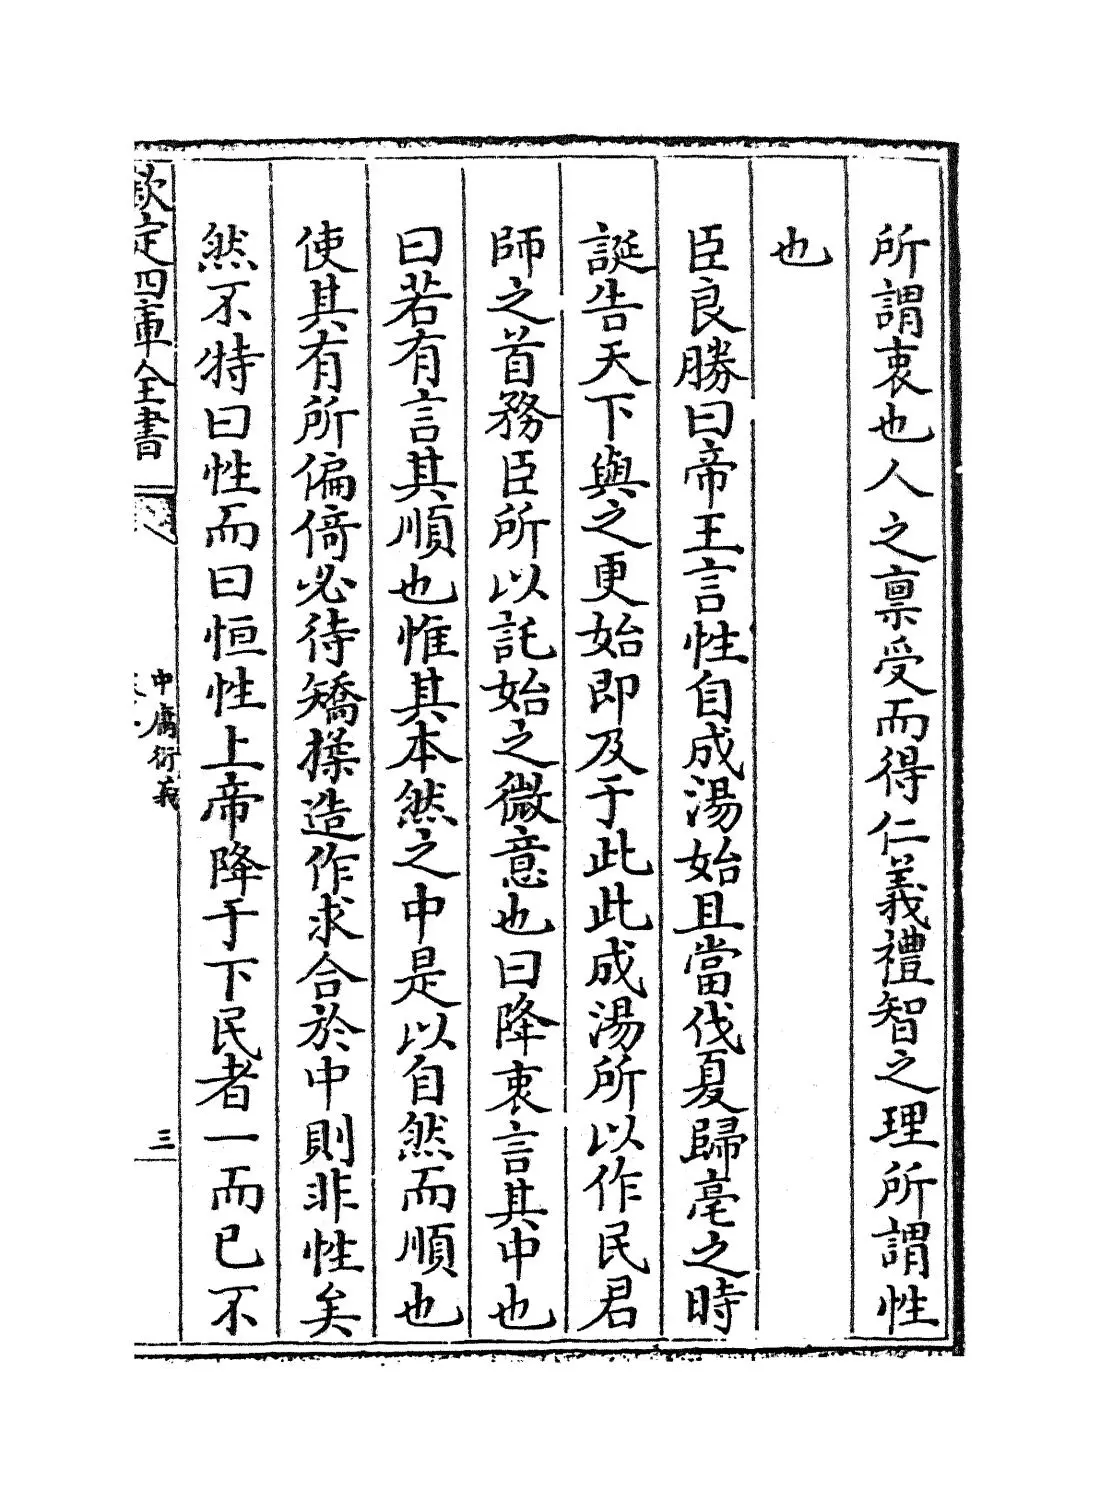 所謂衷也人之稟受而得仁義禮智之理所謂性
也
臣良勝曰帝王言性自成湯始且當伐夏歸亳之時
誕告天下與之更始即及于此此成湯所以作民君
師之首務臣所以託始之微意也曰降衷言其中也
曰若有言其順也惟其本然之中是以自然而順也
使其有所偏倚必待矯揉造作求合於中則非性矣
然不特曰性而曰恒性上帝降于下民者一而已不
欽定四庫全書
中庸衍義
三